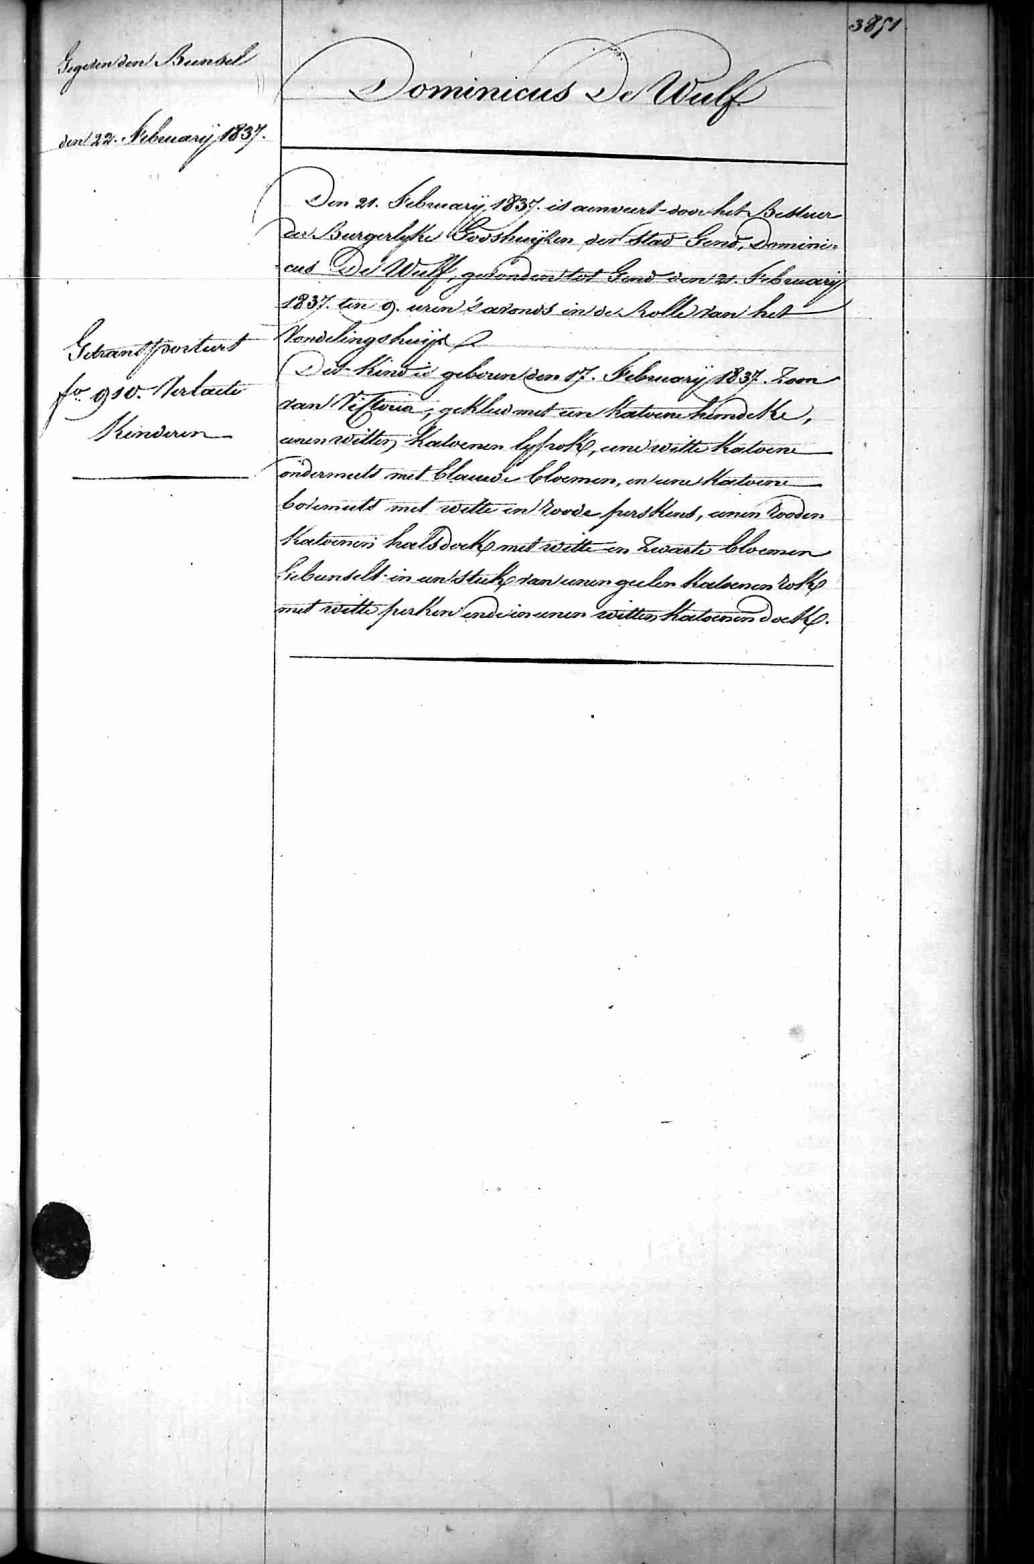 3851
Gegeven den Bundel
den 22. February 1837.
Getransporteert
fo. 910. Verlaete
Kinderen
Dominicus De Wulf
Den 21. February 1837. is aenveert door het Bestuer
der Burgerlyke Godshuyzen der stad Gend, Domini-
cus De Wulf, gevonden tot Gend den 21. February
1837. ten 9. uren 's avonds in de Rolle van het
Vondelingshuys.
Dit kind is geboren den 17. February 1837. Zoon
van Victoria, gekleed met een katoene hemdeke,
eenen witten katoenen lyfrok, eene witte katoene
ondermuts met blauwe bloemen, en eene katoene
bovemuts met witte en roode perskens, eenen rooden
katoenen halsdoek met witte en zwarte bloemen
Gebunselt in een stuk van eenen geelen katoenen rok
met witte perken ende in eenen witten katoenen doek.